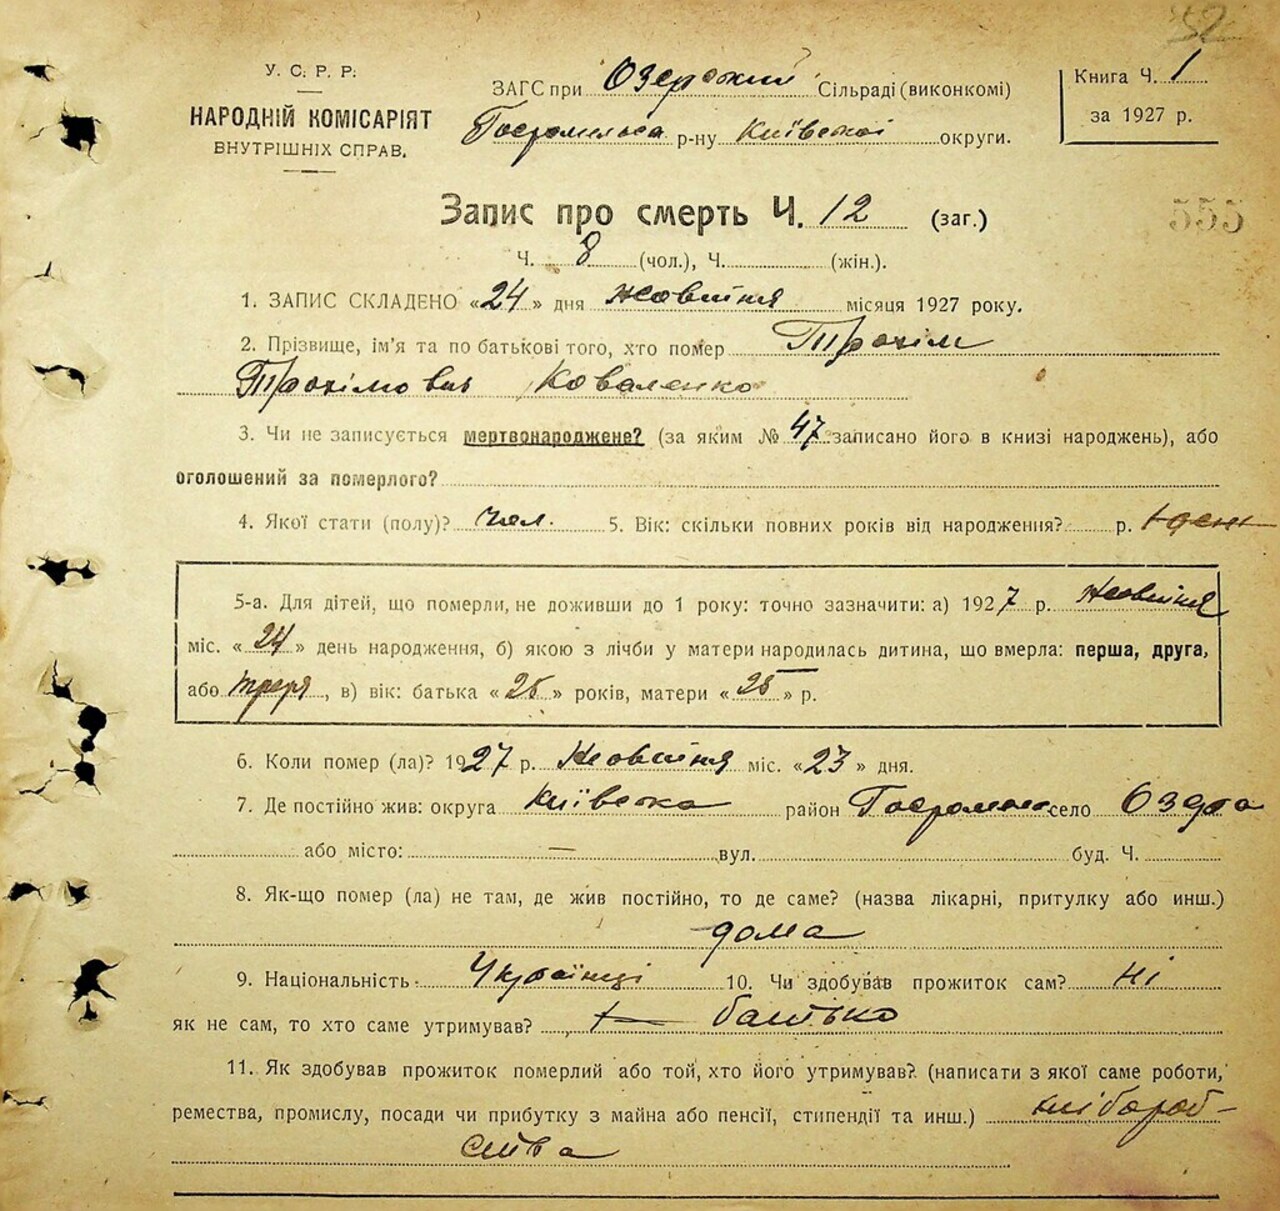 У. С. Р. Р.
НАРОДНІЙ КОМІСАРІЯТ
ВНУТРІШНІХ СПРАВ.
ЗАГС при Озерский Сільраді (виконкомі)
р-ну Київської округи.
Книга Ч. 1
за 1927 р.
Запис про смерть Ч. 12 (заг.)
555
Ч. 8 (чол.), Ч. (жін.).
1. ЗАПИС СКЛАДЕНО «24» дня Жовтня місяця 1927 року.
2. Прізвище, ім'я та по батькові того, хто помер Трохім
Трохімович Коваленко
3. Чи не записується мертвонароджене? (за яким № 47 записано його в книзі народжень), або
оголошений за померлого?
4. Якої стати (полу)? Чол. 5. Вік: скільки повних років від народження? р. 1 день
5-а. Для дітей, що померли, не доживши до 1 року: точно зазначити: а) 1927 р. Жовтня
міс. «24» день народження, б) якою з лічби у матери народилась дитина, що вмерла: перша, друга,
або , в) вік: батька «25» років, матери «25» р.
6. Коли помер (ла)? 1927 р. Жовтня міс. «23» дня.
7. Де постійно жив: округа Київська район село
або місто: — вул. буд. Ч.
8. Як-що помер (ла) не там, де жив постійно, то де саме? (назва лікарні, притулку або инш.)
дома
9. Національність Українці 10. Чи здобував прожиток сам? ні
як не сам, то хто саме утримував? батько
11. Як здобував прожиток померлий або той, хто його утримував? (написати з якої саме роботи,
ремества, промислу, посади чи прибутку з майна або пенсії, стипендії та инш.) хлібороб-
ства